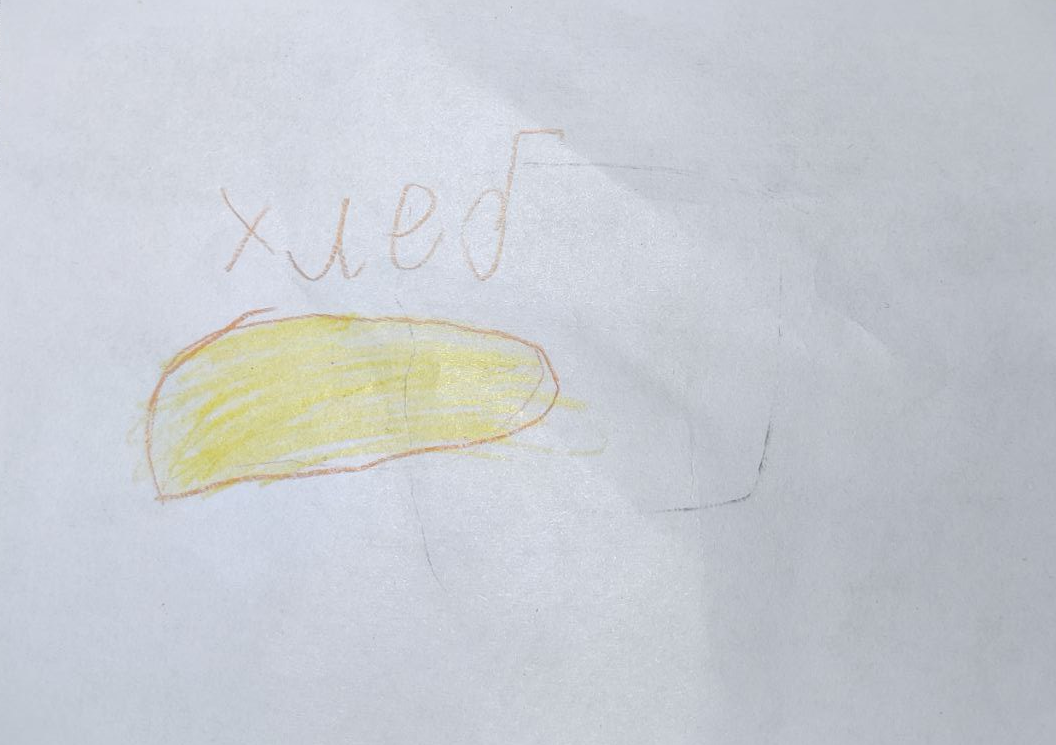 хлеб